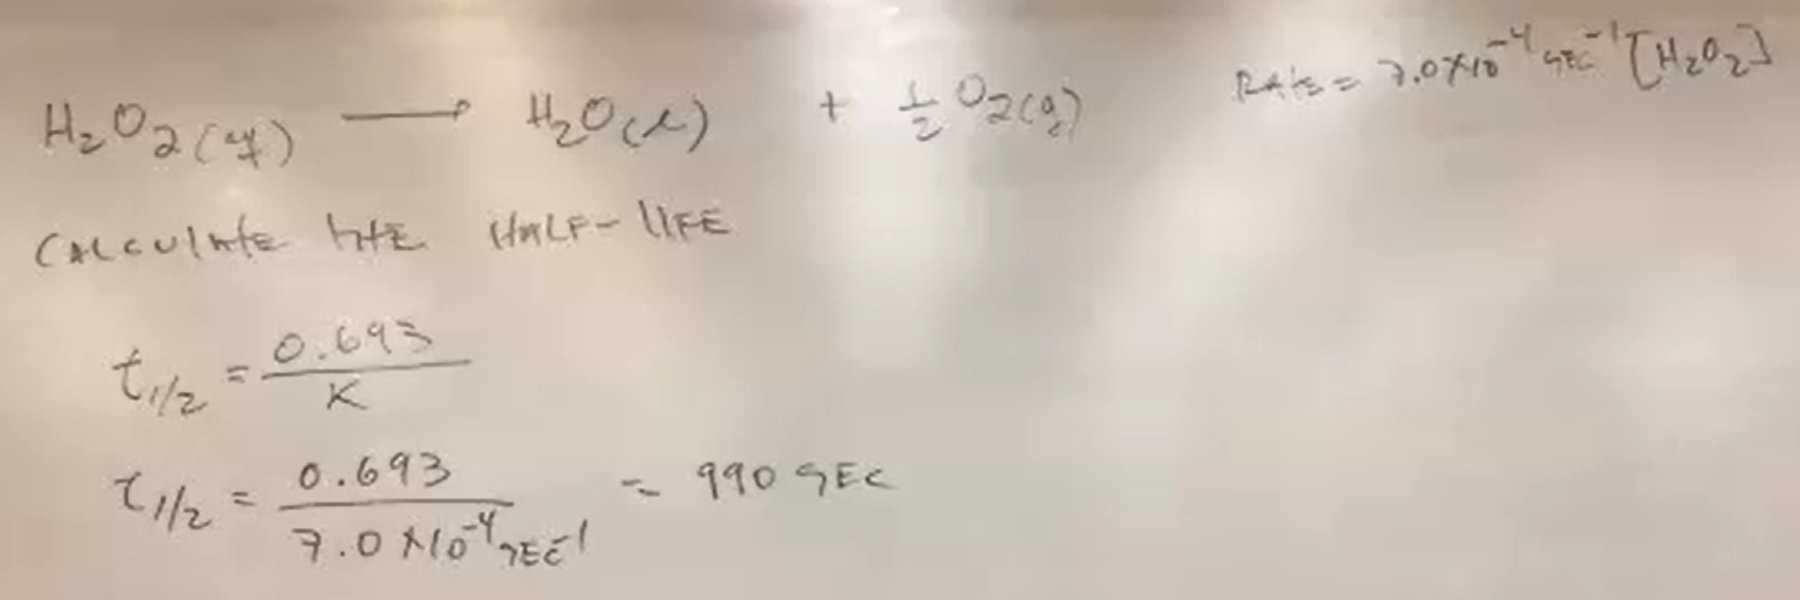 H₂O₂(aq) → H₂O(l) + ½ O₂(g) RATE = 7.0×10⁻⁴ SEC⁻¹ [H₂O₂]
CALCULATE THE HALF-LIFE
t₁/₂ = 0.693 / K
t₁/₂ = 0.693 / 7.0×10⁻⁴ SEC⁻¹ = 990 SEC